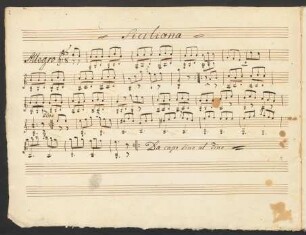 Siciliana
Allegro
Fine
Da capo sino al Fine